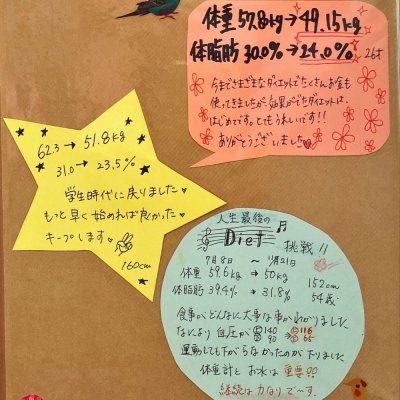 体重57.8kg→49.15kg
体脂肪30.0%→24.0% 26才
今までさまざまなダイエットでたくさんお金も
使ってきましたが、効果がでたダイエットは、
はじめてです。とてもうれしいです!!
ありがとうございました♡
62.3→51.8kg
31.0→23.5%
学生時代に戻りました♥
もっと早く始めれば良かった
キープします
160cm
人生最後の
Diet 挑戦!!
7月8日 ～ 11月21日
体重 59.6kg→50kg
体脂肪 39.4%→31.8%
152cm
54歳
食事がどんなに大事な事かわかりました
なにより血圧が 140 → 116
90 65
運動しても下がらなかったのが下りました
体重計とお水は重要!?
継続は力なりで〜す。